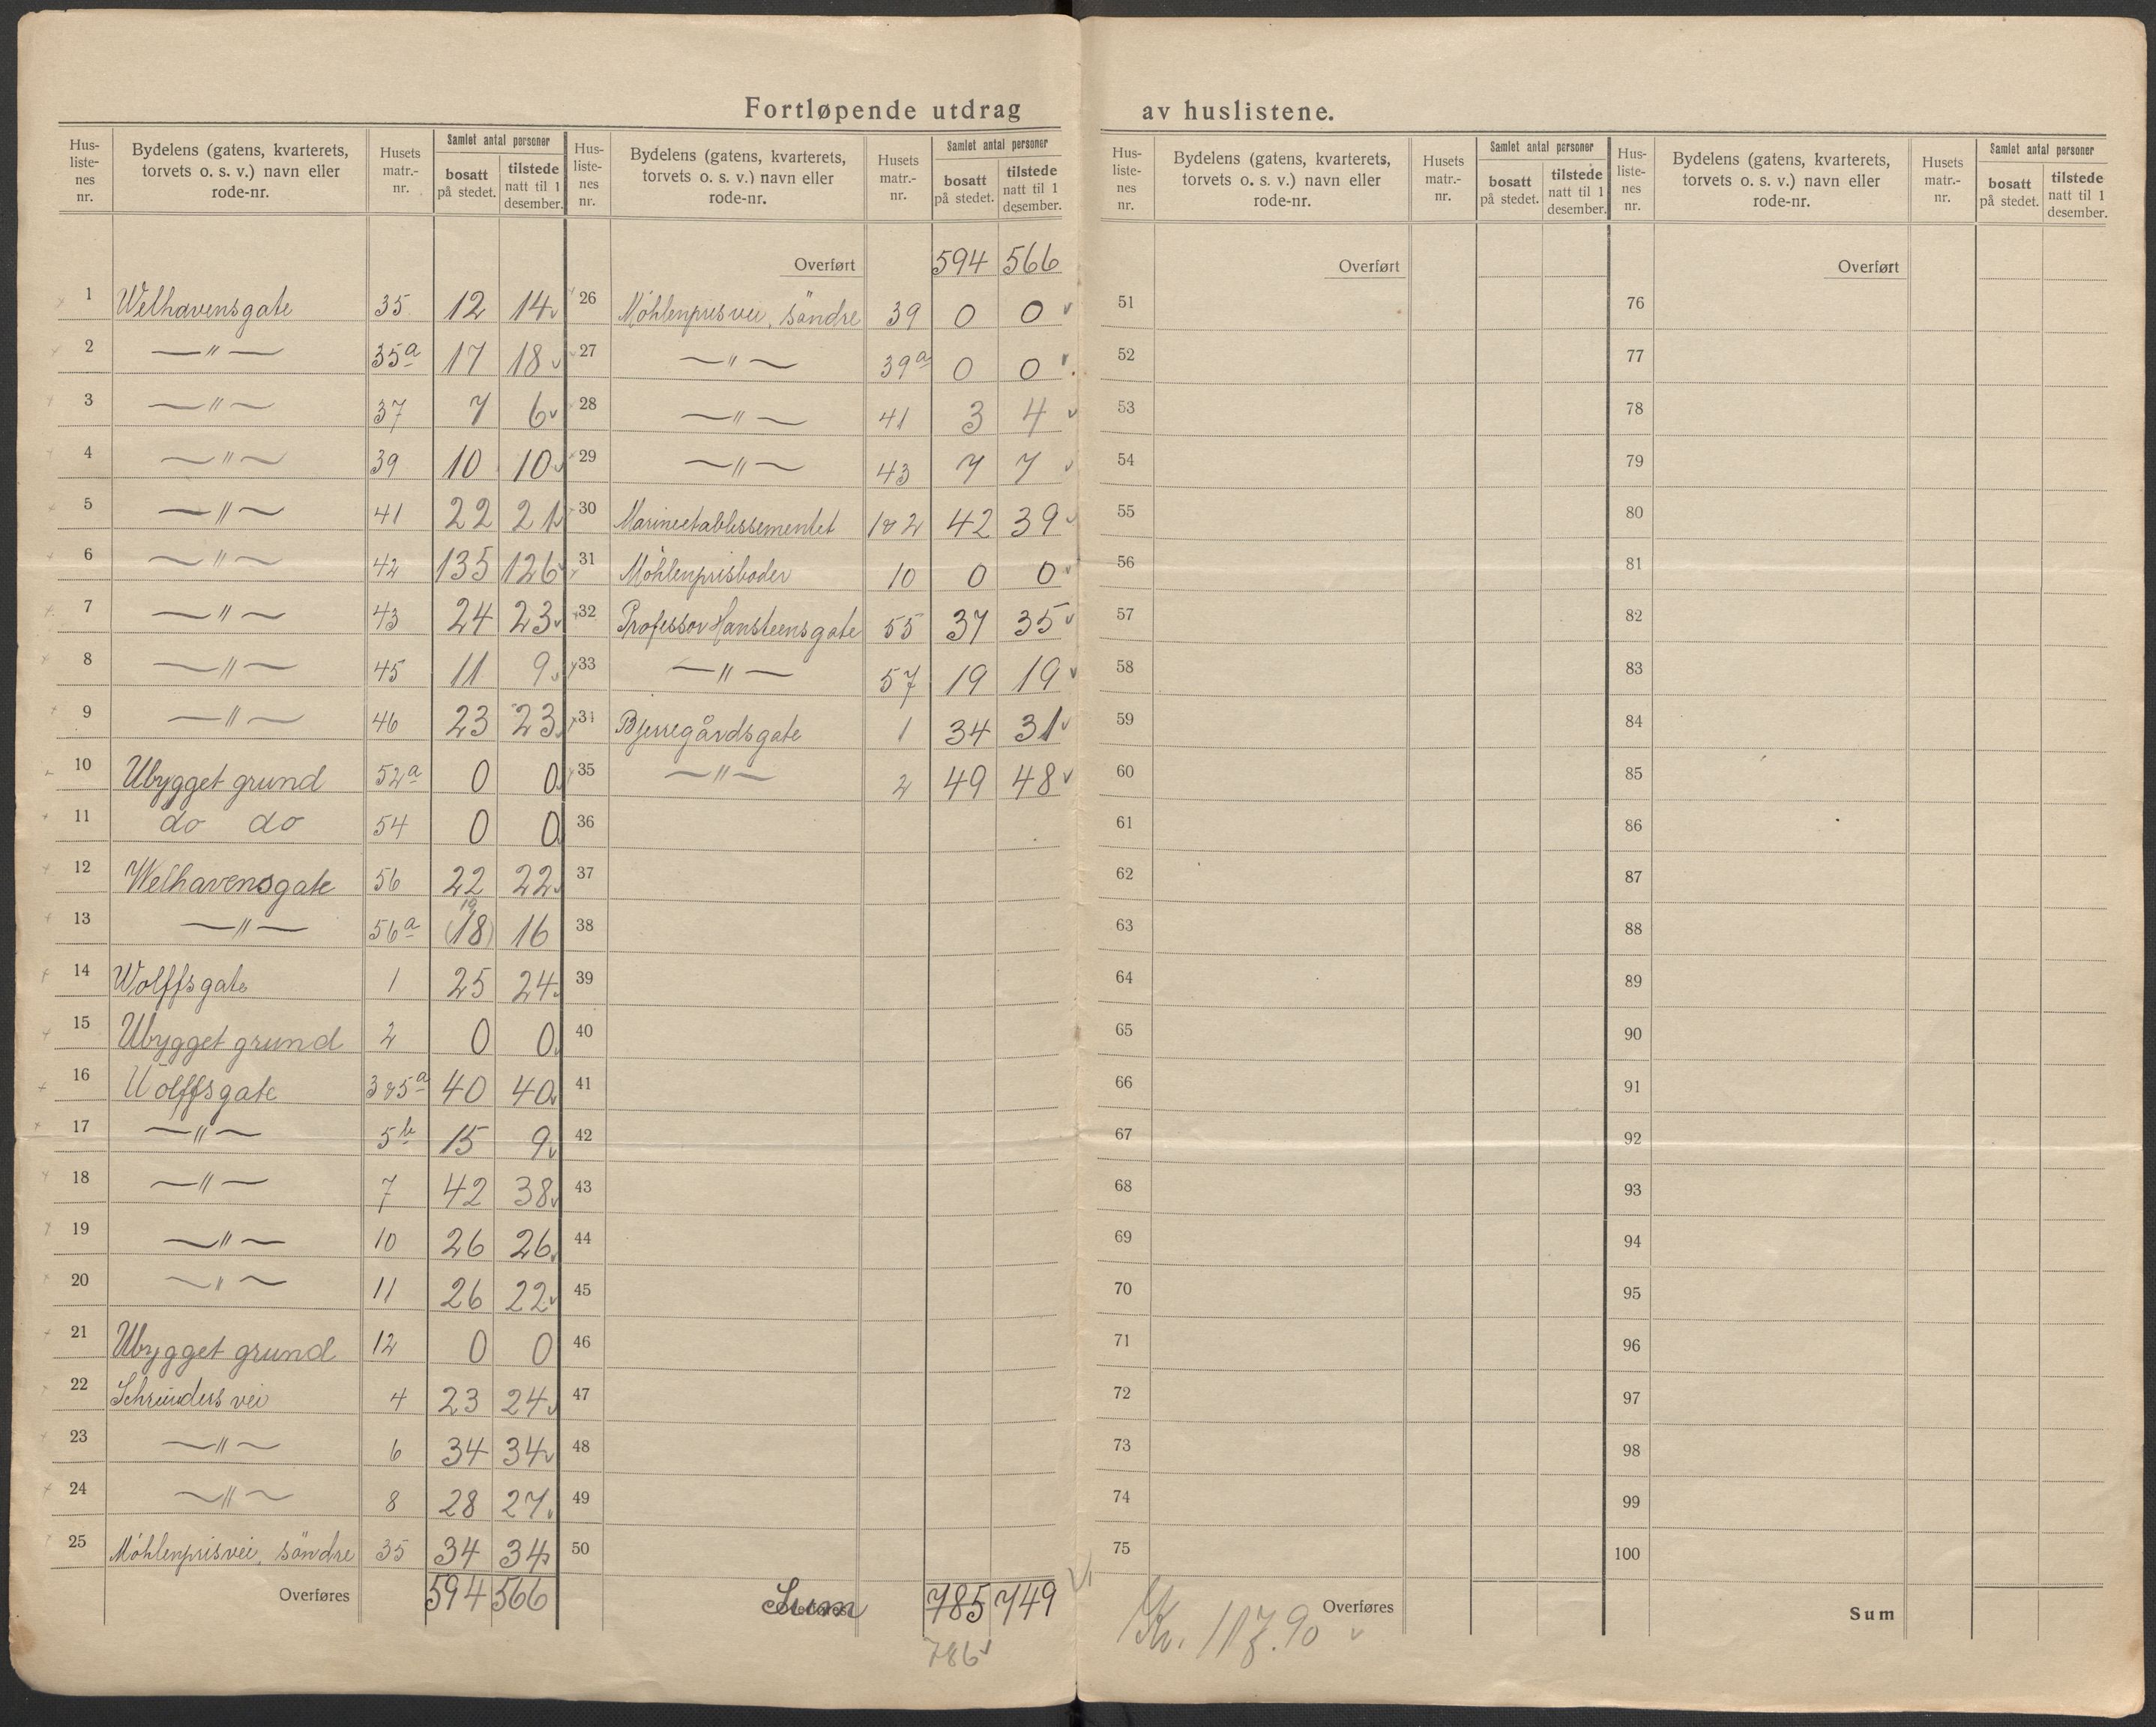 Fortløpende utdrag av huslistene.
Hus-liste-nes nr. | Bydelens (gatens, kvarterets, torvets o. s. v.) navn eller rode-nr. | Husets matr.-nr. | Samlet antal personer | bosatt på stedet. | tilstede natt til 1 desember.
1 Welhavensgate 35 12 14
2 — " — 35a 17 18
3 — " — 37 7 6
4 — " — 39 10 10
5 — " — 41 22 21
6 — " — 42 135 126
7 — " — 43 24 23
8 — " — 45 11 9
9 — " — 46 23 23
10 Ubygget grund 52a 0 0
11 do do 54 0 0
12 Welhavensgate 56 22 22
13 — " — 56a 19 (18) 16
14 Wolffsgate 1 25 24
15 Ubygget grund 2 0 0
16 Wolffsgate 3 & 5a 40 40
17 — " — 5b 15 9
18 — " — 7 42 38
19 — " — 10 26 26
20 — " — 11 26 22
21 Ubygget grund 12 0 0
22 Schreuders vei 4 23 24
23 — " — 6 34 34
24 — " — 8 28 27
25 Möhlenprisvei, söndre 35 34 34
Overføres 594 566
Hus-liste-nes nr. | Bydelens (gatens, kvarterets, torvets o. s. v.) navn eller rode-nr. | Husets matr.-nr. | Samlet antal personer | bosatt på stedet. | tilstede natt til 1 desember.
Overført 594 566
26 Möhlenprisvei, söndre 39 0 0
27 — " — 39a 0 0
28 — " — 41 3 4
29 — " — 43 7 7
30 Marineetablissementet 1 & 2 42 39
31 Möhlenprisboder 10 0 0
32 Professor Hansteensgate 55 37 35
33 — " — 57 19 19
34 Bjerregårdsgate 1 34 31
35 — " — 2 49 48
36
37
38
39
40
41
42
43
44
45
46
47
48
49
50
Sum 785 749
786
Hus-liste-nes nr. | Bydelens (gatens, kvarterets, torvets o. s. v.) navn eller rode-nr. | Husets matr.-nr. | Samlet antal personer | bosatt på stedet. | tilstede natt til 1 desember.
Overført
51
52
53
54
55
56
57
58
59
60
61
62
63
64
65
66
67
68
69
70
71
72
73
74
75
Overføres
Kr. 117.90
Hus-liste-nes nr. | Bydelens (gatens, kvarterets, torvets o. s. v.) navn eller rode-nr. | Husets matr.-nr. | Samlet antal personer | bosatt på stedet. | tilstede natt til 1 desember.
Overført
76
77
78
79
80
81
82
83
84
85
86
87
88
89
90
91
92
93
94
95
96
97
98
99
100
Sum